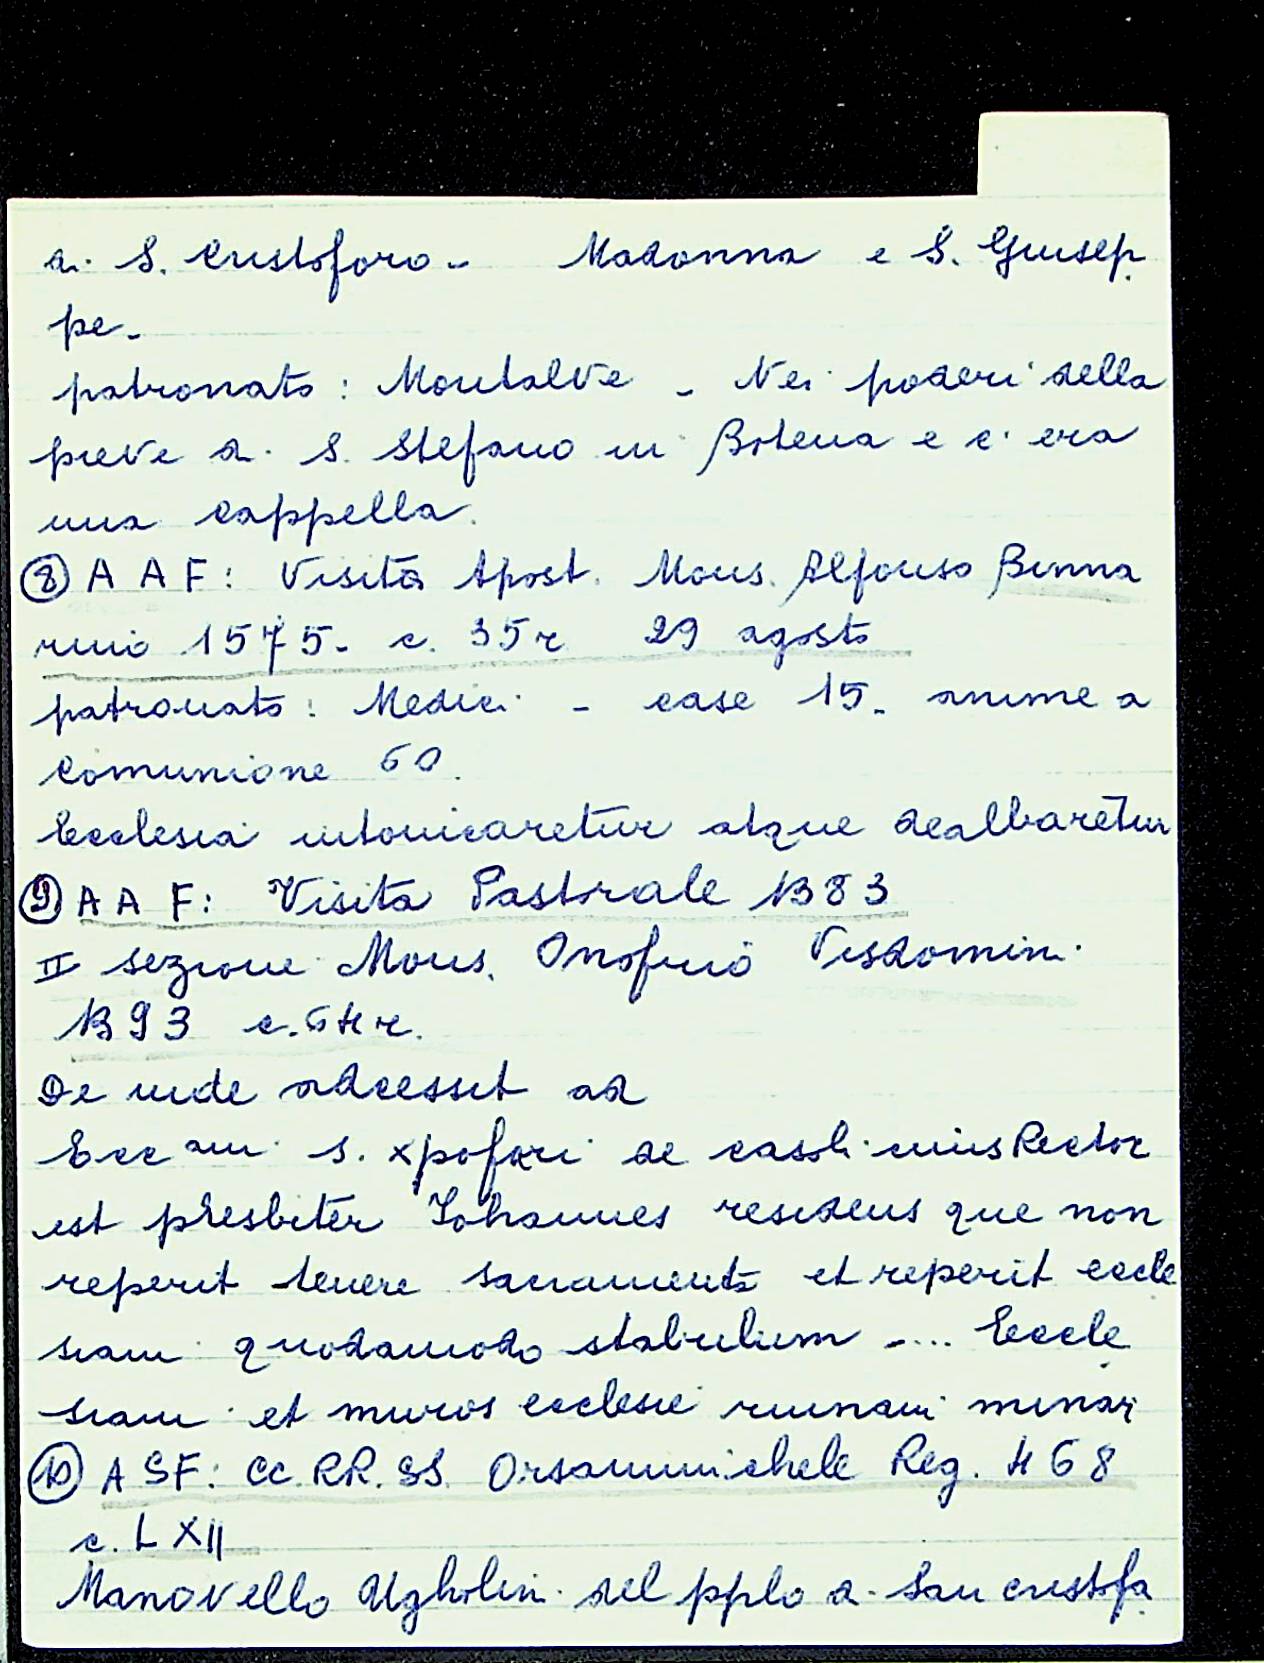 di S. Cristoforo - Madonna e S. Giusep
pe -
patronato: Montalve - Nei poderi della
pieve di S. Stefano in Botena e c'era
una cappella.
⑧ A A F: Visita Apost. Mons. Alfonso Binna
rino 1575 - c. 35r 29 agosto
patronato: Medici - case 15 - anime a
comunione 60.
Ecclesia intonicaretur atque dealbaretur
⑨ A A F: Visita Pastorale 1383
II sezione Mons. Onofrio Visdomini
1393 c. 64r.
De inde adcessit ad
Ecc am S. Xpofori de casoli cuius Rector
est presbiter Johannes residens que non
reperit tenere sacramenta et reperit eccle
siam quodamodo stabulum - ... Eccle
siam et muros ecclesie ruinam minari
⑩ A S F: CC. RR. SS. Orsanmichele Reg. 468
c. LXII
Manovello Ugholini del pplo di San Cristofa